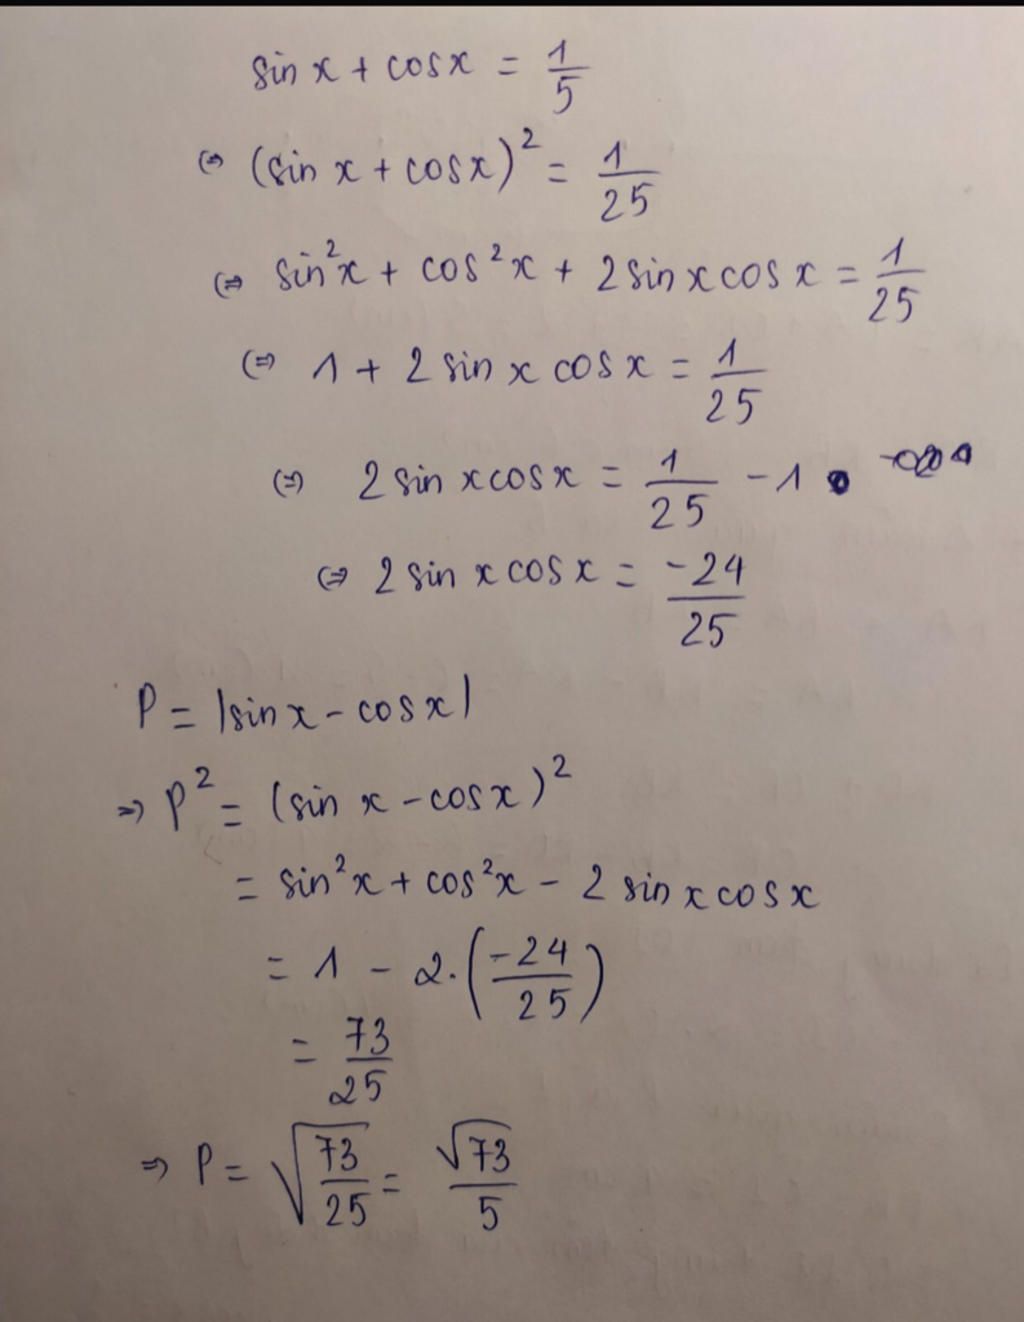 sin x + cos x = 1/5
⇔ (sin x + cos x)² = 1/25
⇔ sin²x + cos²x + 2 sin x cos x = 1/25
⇔ 1 + 2 sin x cos x = 1/25
⇔ 2 sin x cos x = 1/25 - 1
⇔ 2 sin x cos x = -24/25
P = |sin x - cos x|
⇒ P² = (sin x - cos x)²
= sin²x + cos²x - 2 sin x cos x
= 1 - 2.(-24/25)
= 73/25
⇒ P = √(73/25) = √73/5